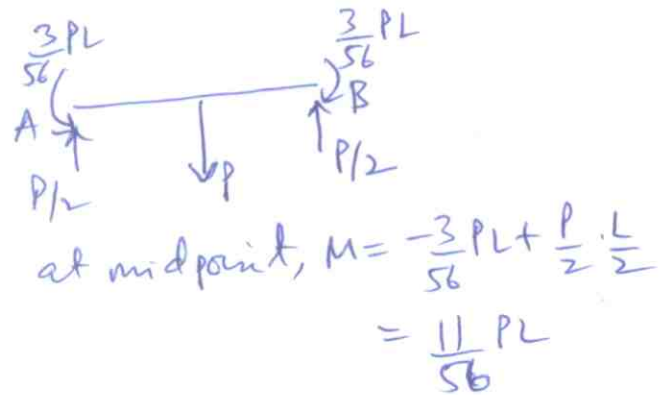 3/56 PL 3/56 PL
A B
P/2 P P/2
at midpoint, M = -3/56 PL + P/2 · L/2
= 11/56 PL